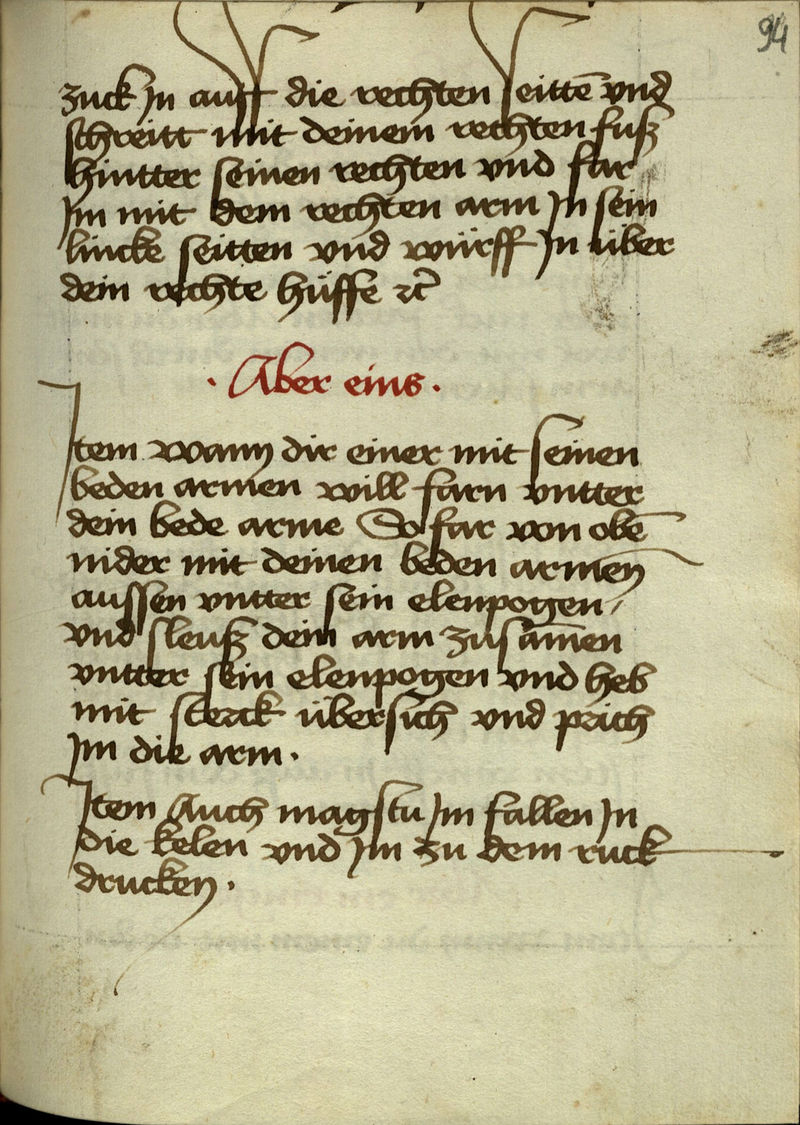 94
zuck Jn auff die rechten seittē vnd
schreitt mit deinem rechten fuß
hintter seinen rechten vnd far
Jm mit dem rechten arm Jn sein
lincke seitten vnd würff Jn über
dein rechte hüffe ꝛc̃
· Aber eins ·
Jtem wann dir einer mit seinen
beden armen will farn vntter
dein bede arme So far von obē
nider mit deinen beden armen
aussen vntter sein elenpogen /
vnd sleuß dein arm zusamēn
vntter sein elenpogen vnd heb
mit sterck übersich vnd prich
Jm die arm ·
Jtem Auch magstu Jm fallen Jn
die kelen vnd Jm zu dem ruck
drucken ·